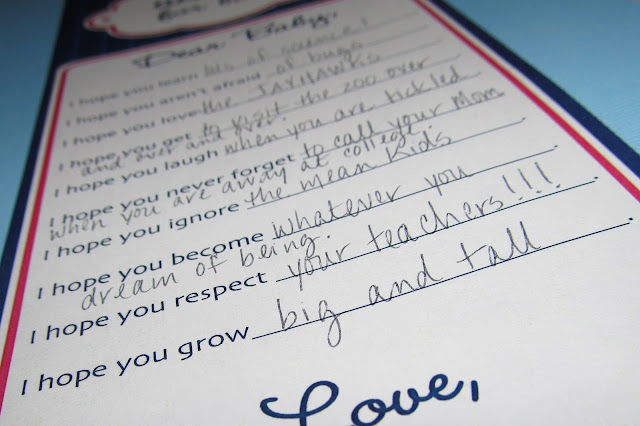 Dear Baby,
I hope you learn lots of science!
I hope you aren't afraid of bugs
I hope you love the JAYHAWKS
I hope you get to visit the zoo over
and over and over.
I hope you laugh when you are tickled
I hope you never forget to call your mom
when you are away at college.
I hope you ignore the mean kids.
I hope you become whatever you
dream of being.
I hope you respect your teachers!!!.
I hope you grow big and tall.
Love,